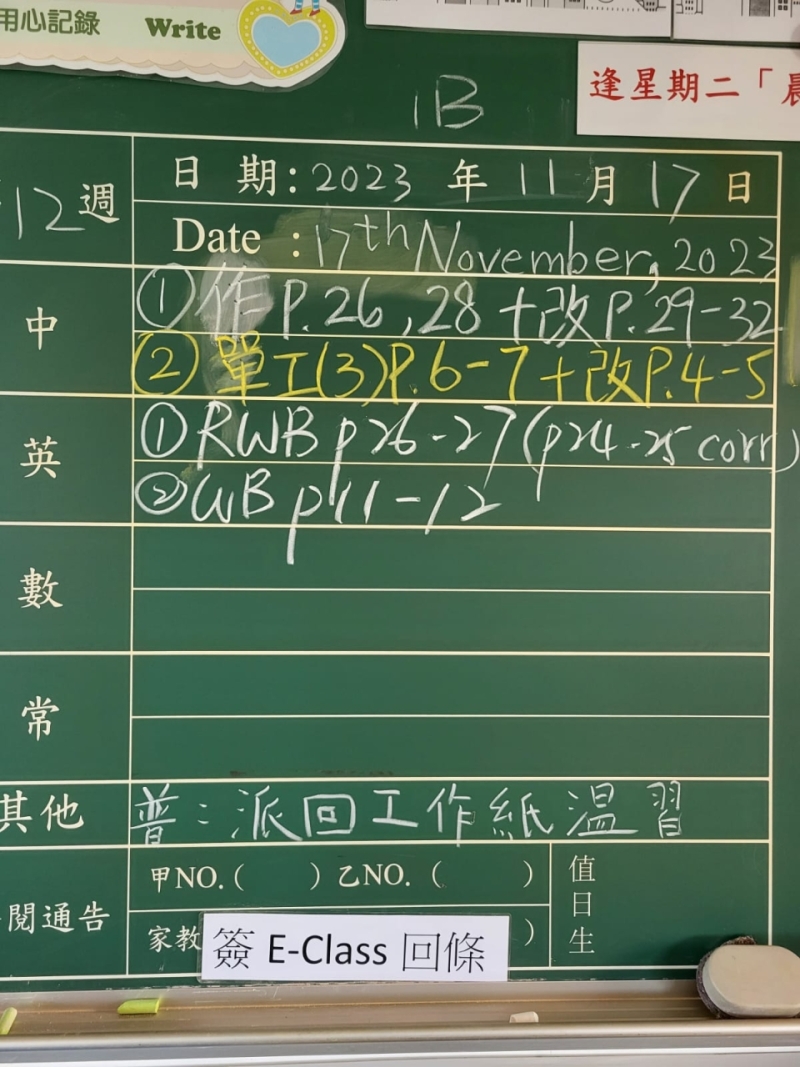 用心記錄 Write
逢星期二「晨
1B
12週
日期:2023年11月17日
Date :17th November, 2023
中
①作P.26,28+改P.29-32
②單工(3)P.6-7+改P.4-5
英
①RWB p26-27(p24-25 corr)
②WB p11-12
數
常
其他
普:派回工作紙溫習
閱通告
甲NO.( )乙NO.( )
家教
)
值日生
簽 E-Class 回條